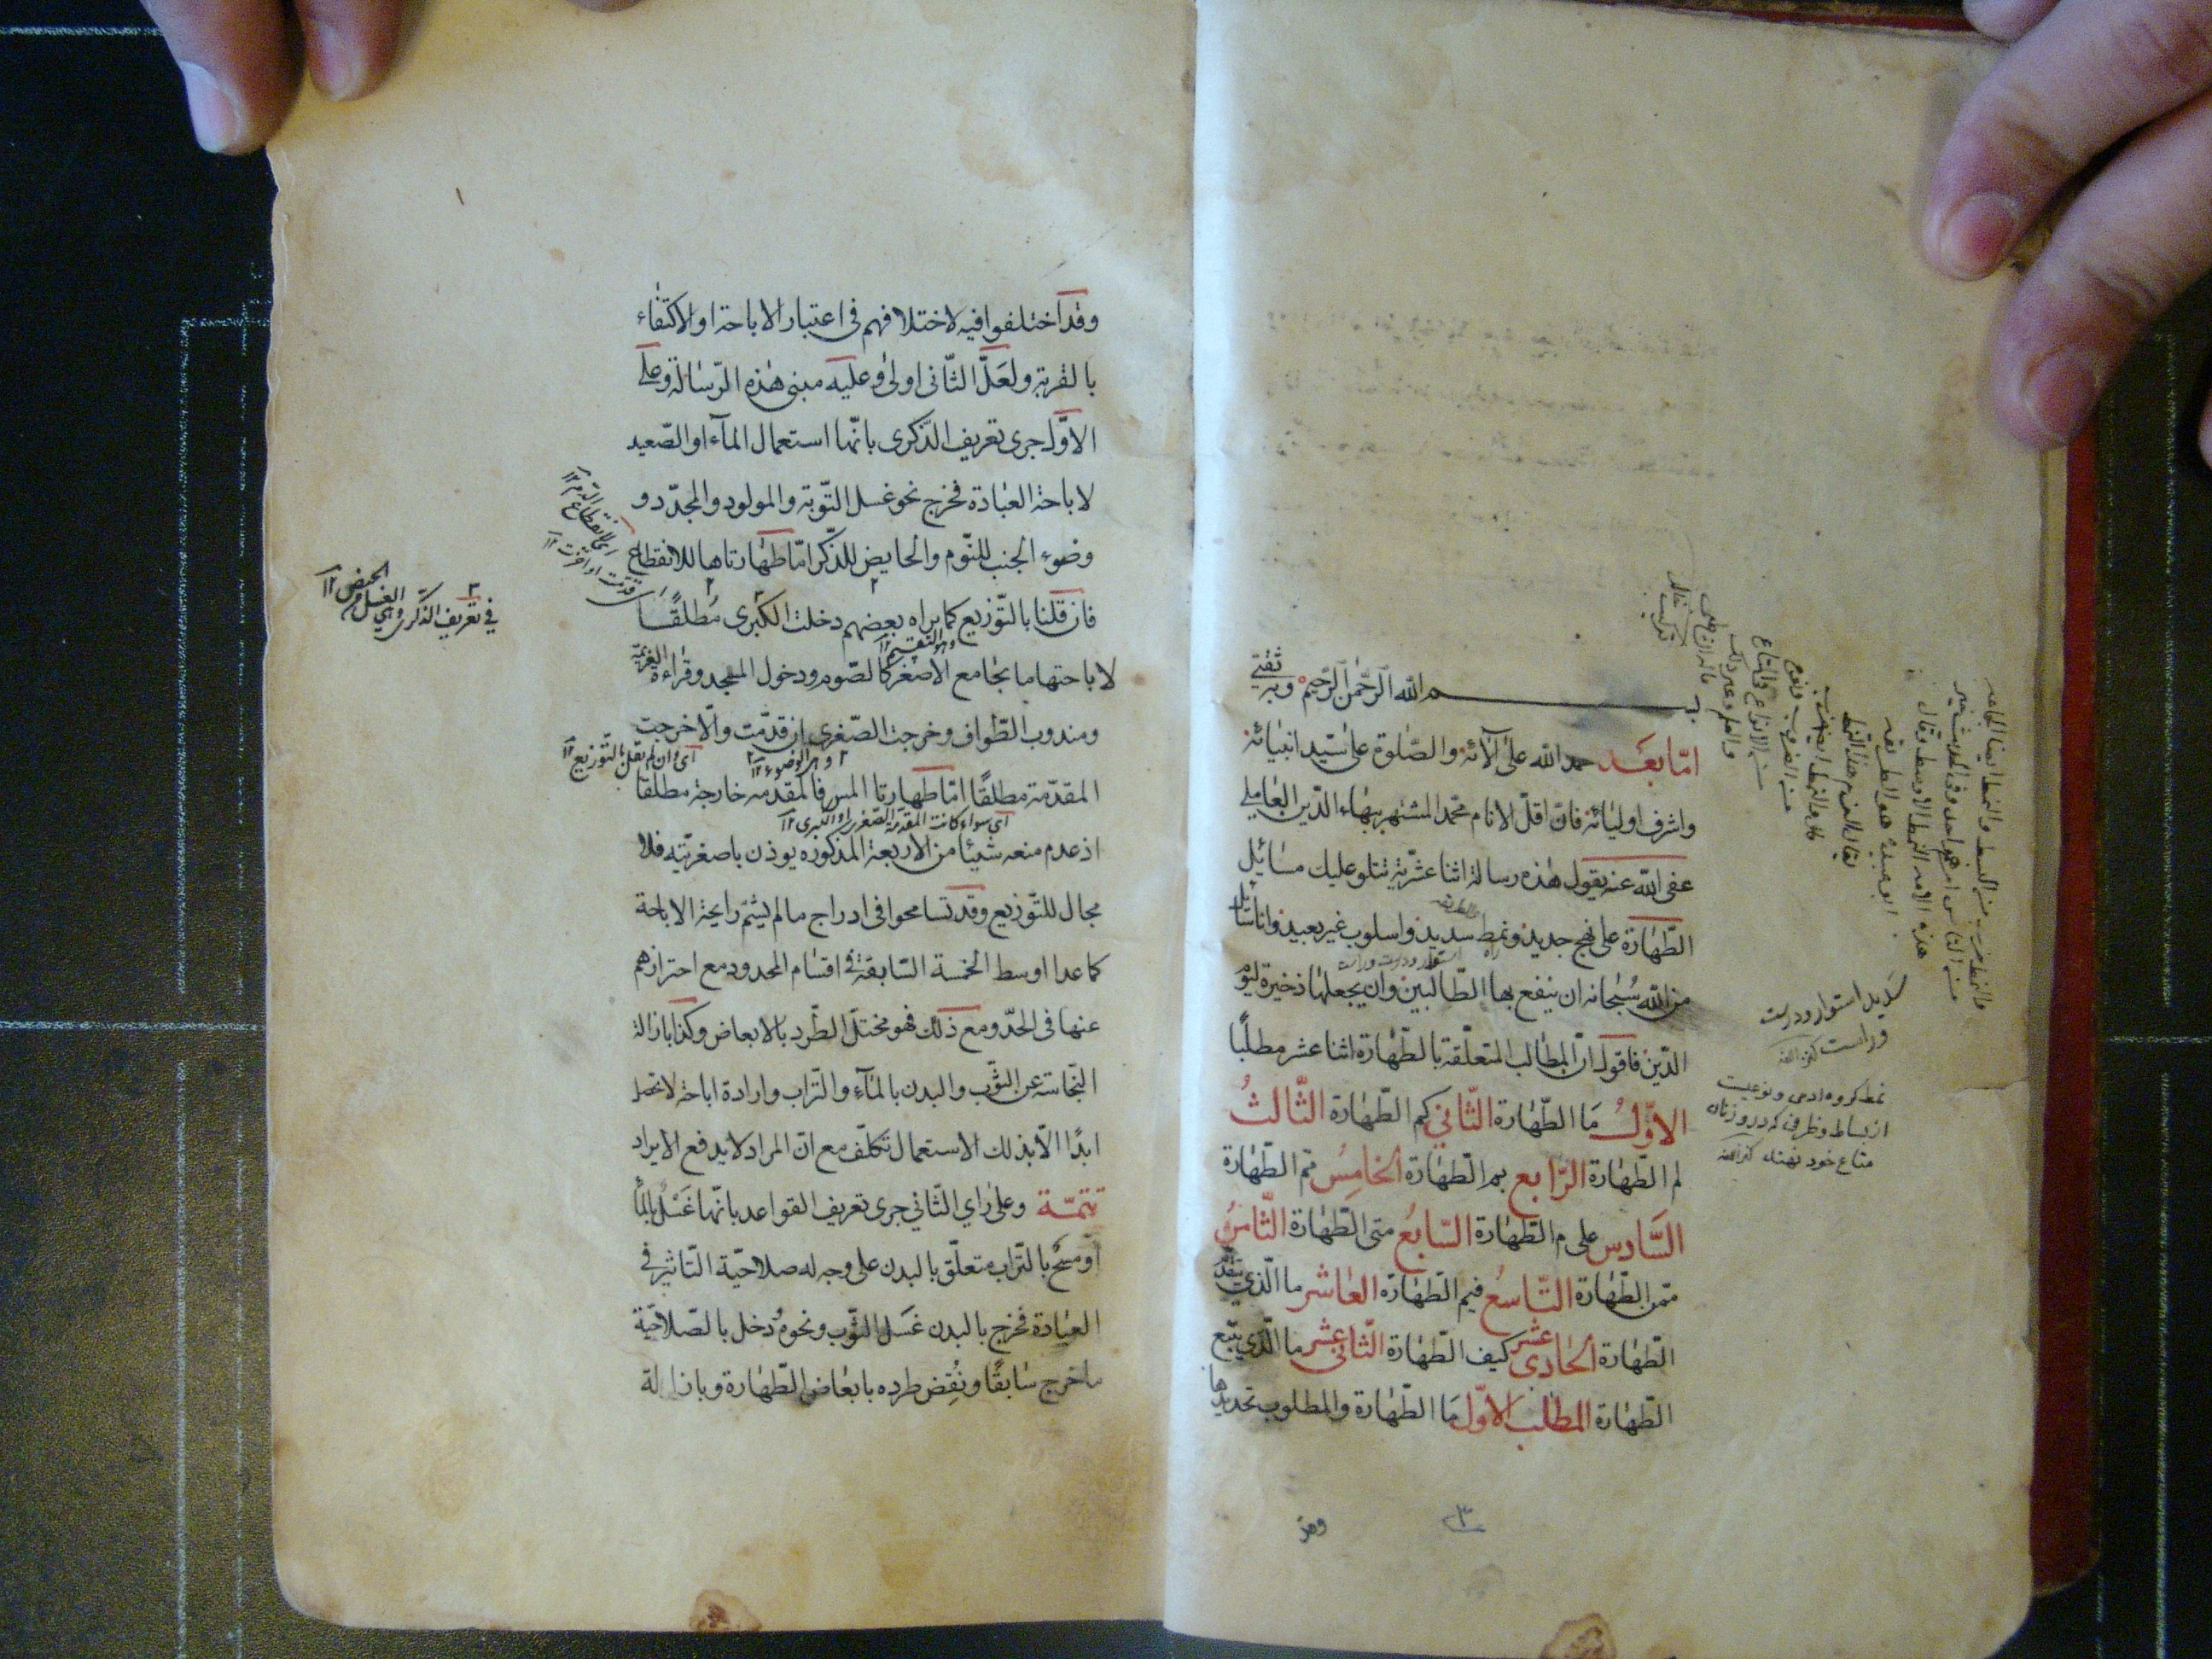 بسم الله الرحمن الرحيم وبه ثقتي
امّا بعد حمد الله على آلائه والصّلوة على سيد انبيائه
واشرف اوليائه فانّ اقلّ الانام محمد المشتهر ببهاء الدّين العاملي
عفى الله عنه يقول هذه رسالة اثنا عشريّة تتلو عليك مسائل
الطّهارة على نهج جديد ونمط سديد واسلوب غير بعيد وانا سائل
من الله سبحانه ان ينفع بها الطّالبين وان يجعلها ذخيرة ليوم
الدّين فاقول انّ المطالب المتعلّقة بالطّهارة اثنا عشر مطلبًا
الاوّل ما الطّهارة الثّاني كم الطّهارة الثّالث
لم الطّهارة الرّابع بم الطّهارة الخامس مم الطّهارة
السّادس على م الطّهارة السّابع متى الطّهارة الثّامن
ممّن الطّهارة التّاسع فيم الطّهارة العاشر ما الّذي يتقدّم
الطّهارة الحادى عشر كيف الطّهارة الثّانى عشر ما الّذي يتبع
الطّهارة المطلب الاوّل ما الطّهارة والمطلوب تحديدها
سديد استوار ودرست
وراست كنز اللغه
نمط كروه ادمى ونوعيت
از بساط وظرفى كه درو زنان
متاع خود نهند كنز اللغه
٣
وقد
وقد اختلفوا فيه لاختلافهم فى اعتبار الاباحة او الاكتفاء
بالقربة ولعلّ الثّانى اولى وعليه مبنى هذه الرّسالة وعلى
الاوّل جرى تعريف الذّكرى بانّها استعمال المآء او الصّعيد
لاباحة العبادة فخرج نحو غسل التّوبة والمولود والمجدّد و
وضوء الجنب للنّوم والحايض للذّكر امّا طهارتاها للانقطاع
فان قلنا بالتّوزيع كما يراه بعضهم دخلت الكبرى مطلقًا
وهو التقسيم ١٢
لاباحتها ما يجامع الاصغر كالصّوم ودخول المسجد وقراءة العزيمة
ومندوب الطّواف وخرجت الصّغرى ان قدّمت والّا خرجت
اى وان لم نقل بالتّوزيع ١٢
وهو الوضوء ١٢
المقدّمة مطلقًا امّا طهارتا المس فالمقدّمه خارجة مطلقا
اى سواء كانت المقدمة الصّغرى او الكبرى ١٢
اذ عدم منعه شيئا من الاربعة المذكوره يوذن باصغريّته فلا
مجال للتّوزيع وقد تسامحوا فى ادراج ما لم يشتمّ رايحة الاباحة
كما عدا اوسط الخمسة السّابقة فى اقسام المحدود مع احترازهم
عنها فى الحدّ ومع ذلك فهو مختلّ الطّرد بالابعاض وكذا بازالة
النّجاسة عن الثّوب والبدن بالمآء والتّراب وارادة اباحة لا تحصل
ابدًا الّا بذلك الاستعمال تكلّف مع انّ المراد لا يدفع الايراد
تتمّة وعلى راي الثّاني جرى تعريف القواعد بانّها غسل بالمآء
او مسح بالتّراب متعلّق بالبدن على وجه له صلاحيّة التّاثير فى
العبادة فخرج بالبدن غسل الثّوب ونحوه دخل بالصّلاحيّة
ما خرج سابقًا ونقض طرده بابعاض الطّهارة وبازالة
في تعريف الذّكرى